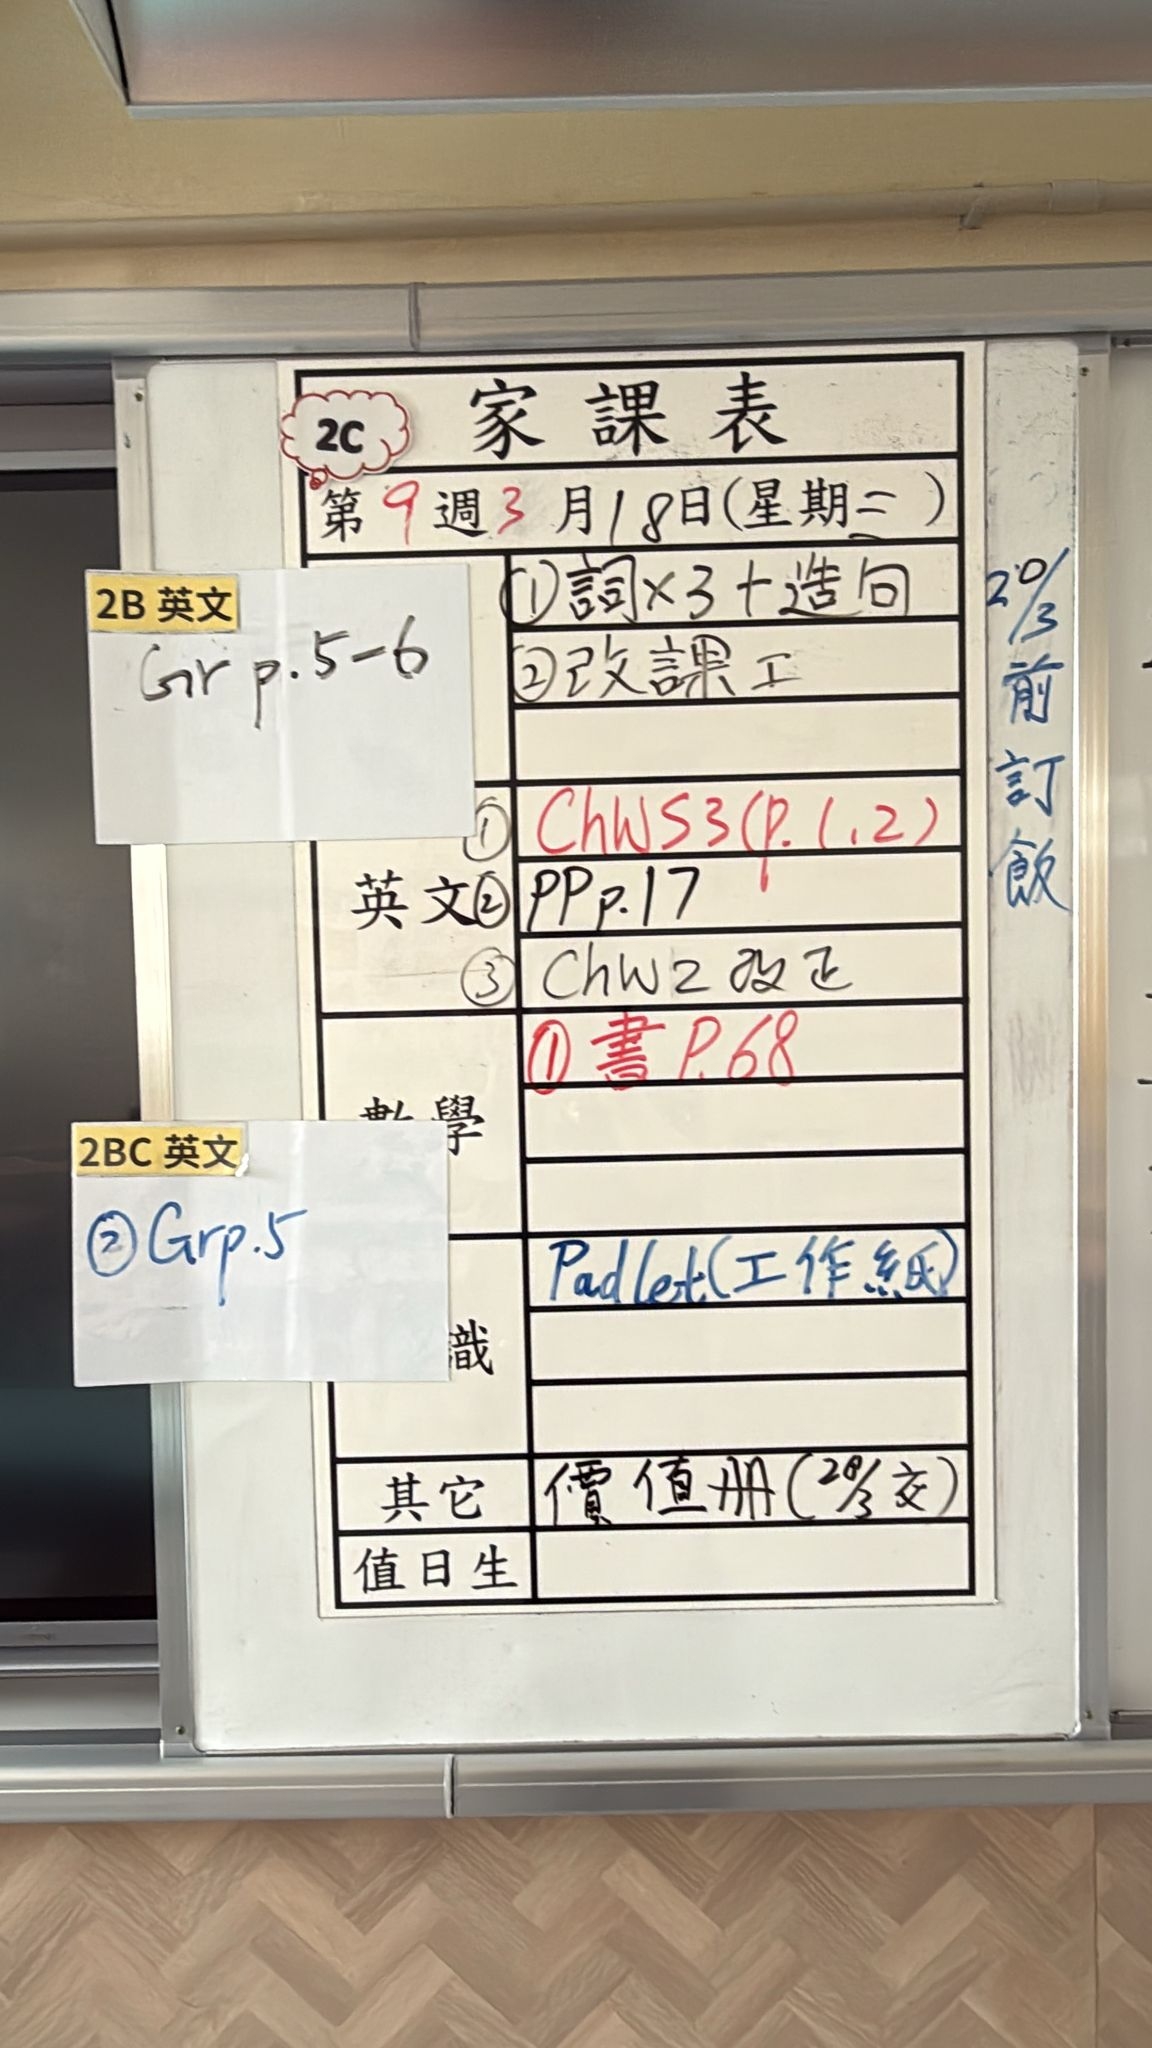 2C
家課表
第9週3月18日(星期二)
①詞×3+造句
②改課工
2B 英文
Gr p.5-6
英文
① ChWS3(p.1,2)
② PP p.17
③ ChW2 改正
學
① 書 P.68
2BC 英文
② Gr p.5
識
Padlet(工作紙)
其它
價值冊(28/3交)
值日生
20/3前訂飯